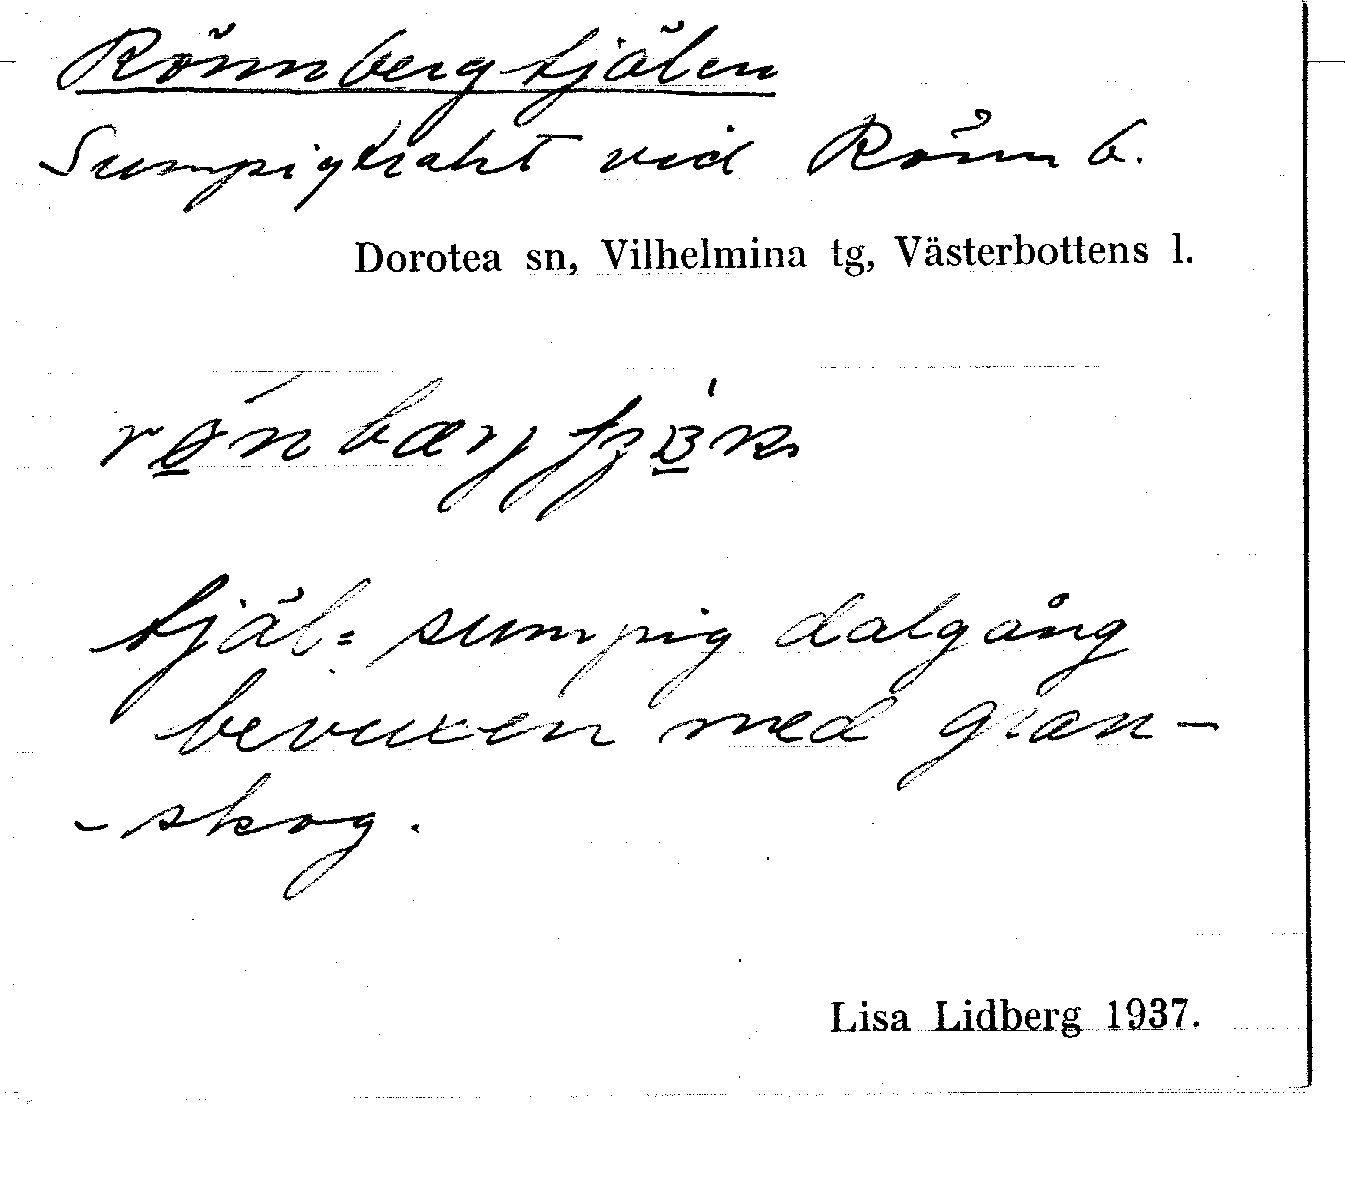 Rönnbergtjälen
Sumpigtrakt vid Rönn b.
Dorotea sn, Vilhelmina tg, Västerbottens l.
tjäl = sumpig dalgång
bevuxen med gran-
-skog.
Lisa Lidberg 1937.